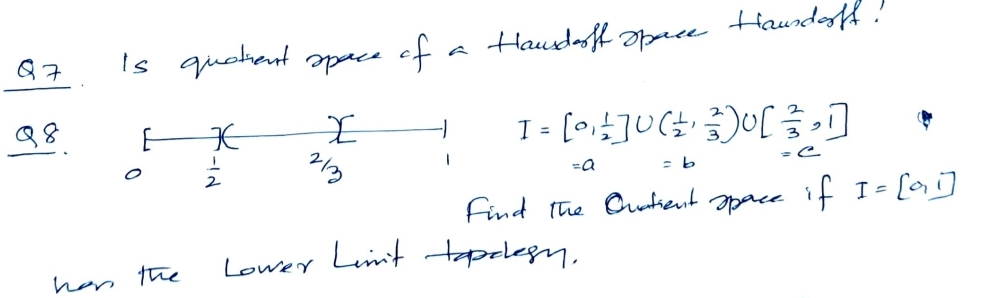 Q7. Is quotient space of a Hausdorff space Hausdorff?
Q8. I = [0, 1/2] ∪ (1/2, 2/3) ∪ [2/3, 1]
0 1/2 2/3 1
=a =b =c
Find the Quotient space if I = [0, 1]
has the Lower Limit topology.